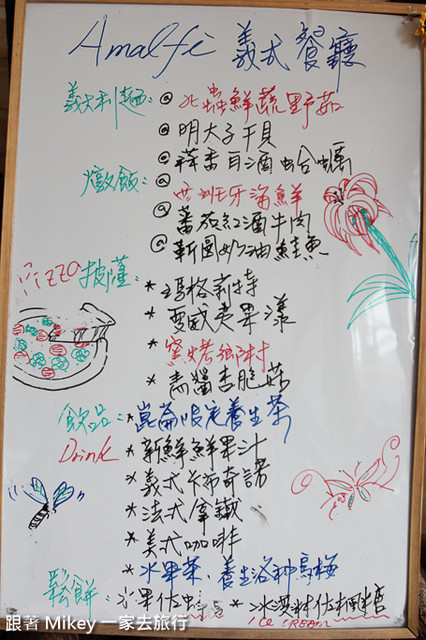 Amalfi 義式餐廳
義大利麵:@北蟲鮮蔬野菇
@明太子干貝
@蒜香白酒蛤蠣
燉飯:@西班牙海鮮
@蕃茄紅酒牛肉
@新圓奶油鮭魚
Pizza披薩:*瑪格莉特
*夏威夷果漾
*窯烤鄉村
*青醬杏脆菇
飲品:*崑崙限定養生茶
Drink *新鮮鮮果汁
*義式卡布奇諾
*法式拿鐵
*美式咖啡
*水果茶、養生洛神烏梅
鬆餅:水果佐 *冰淇淋佐楓糖
ICE CREAM
跟著 Mikey 一家去旅行